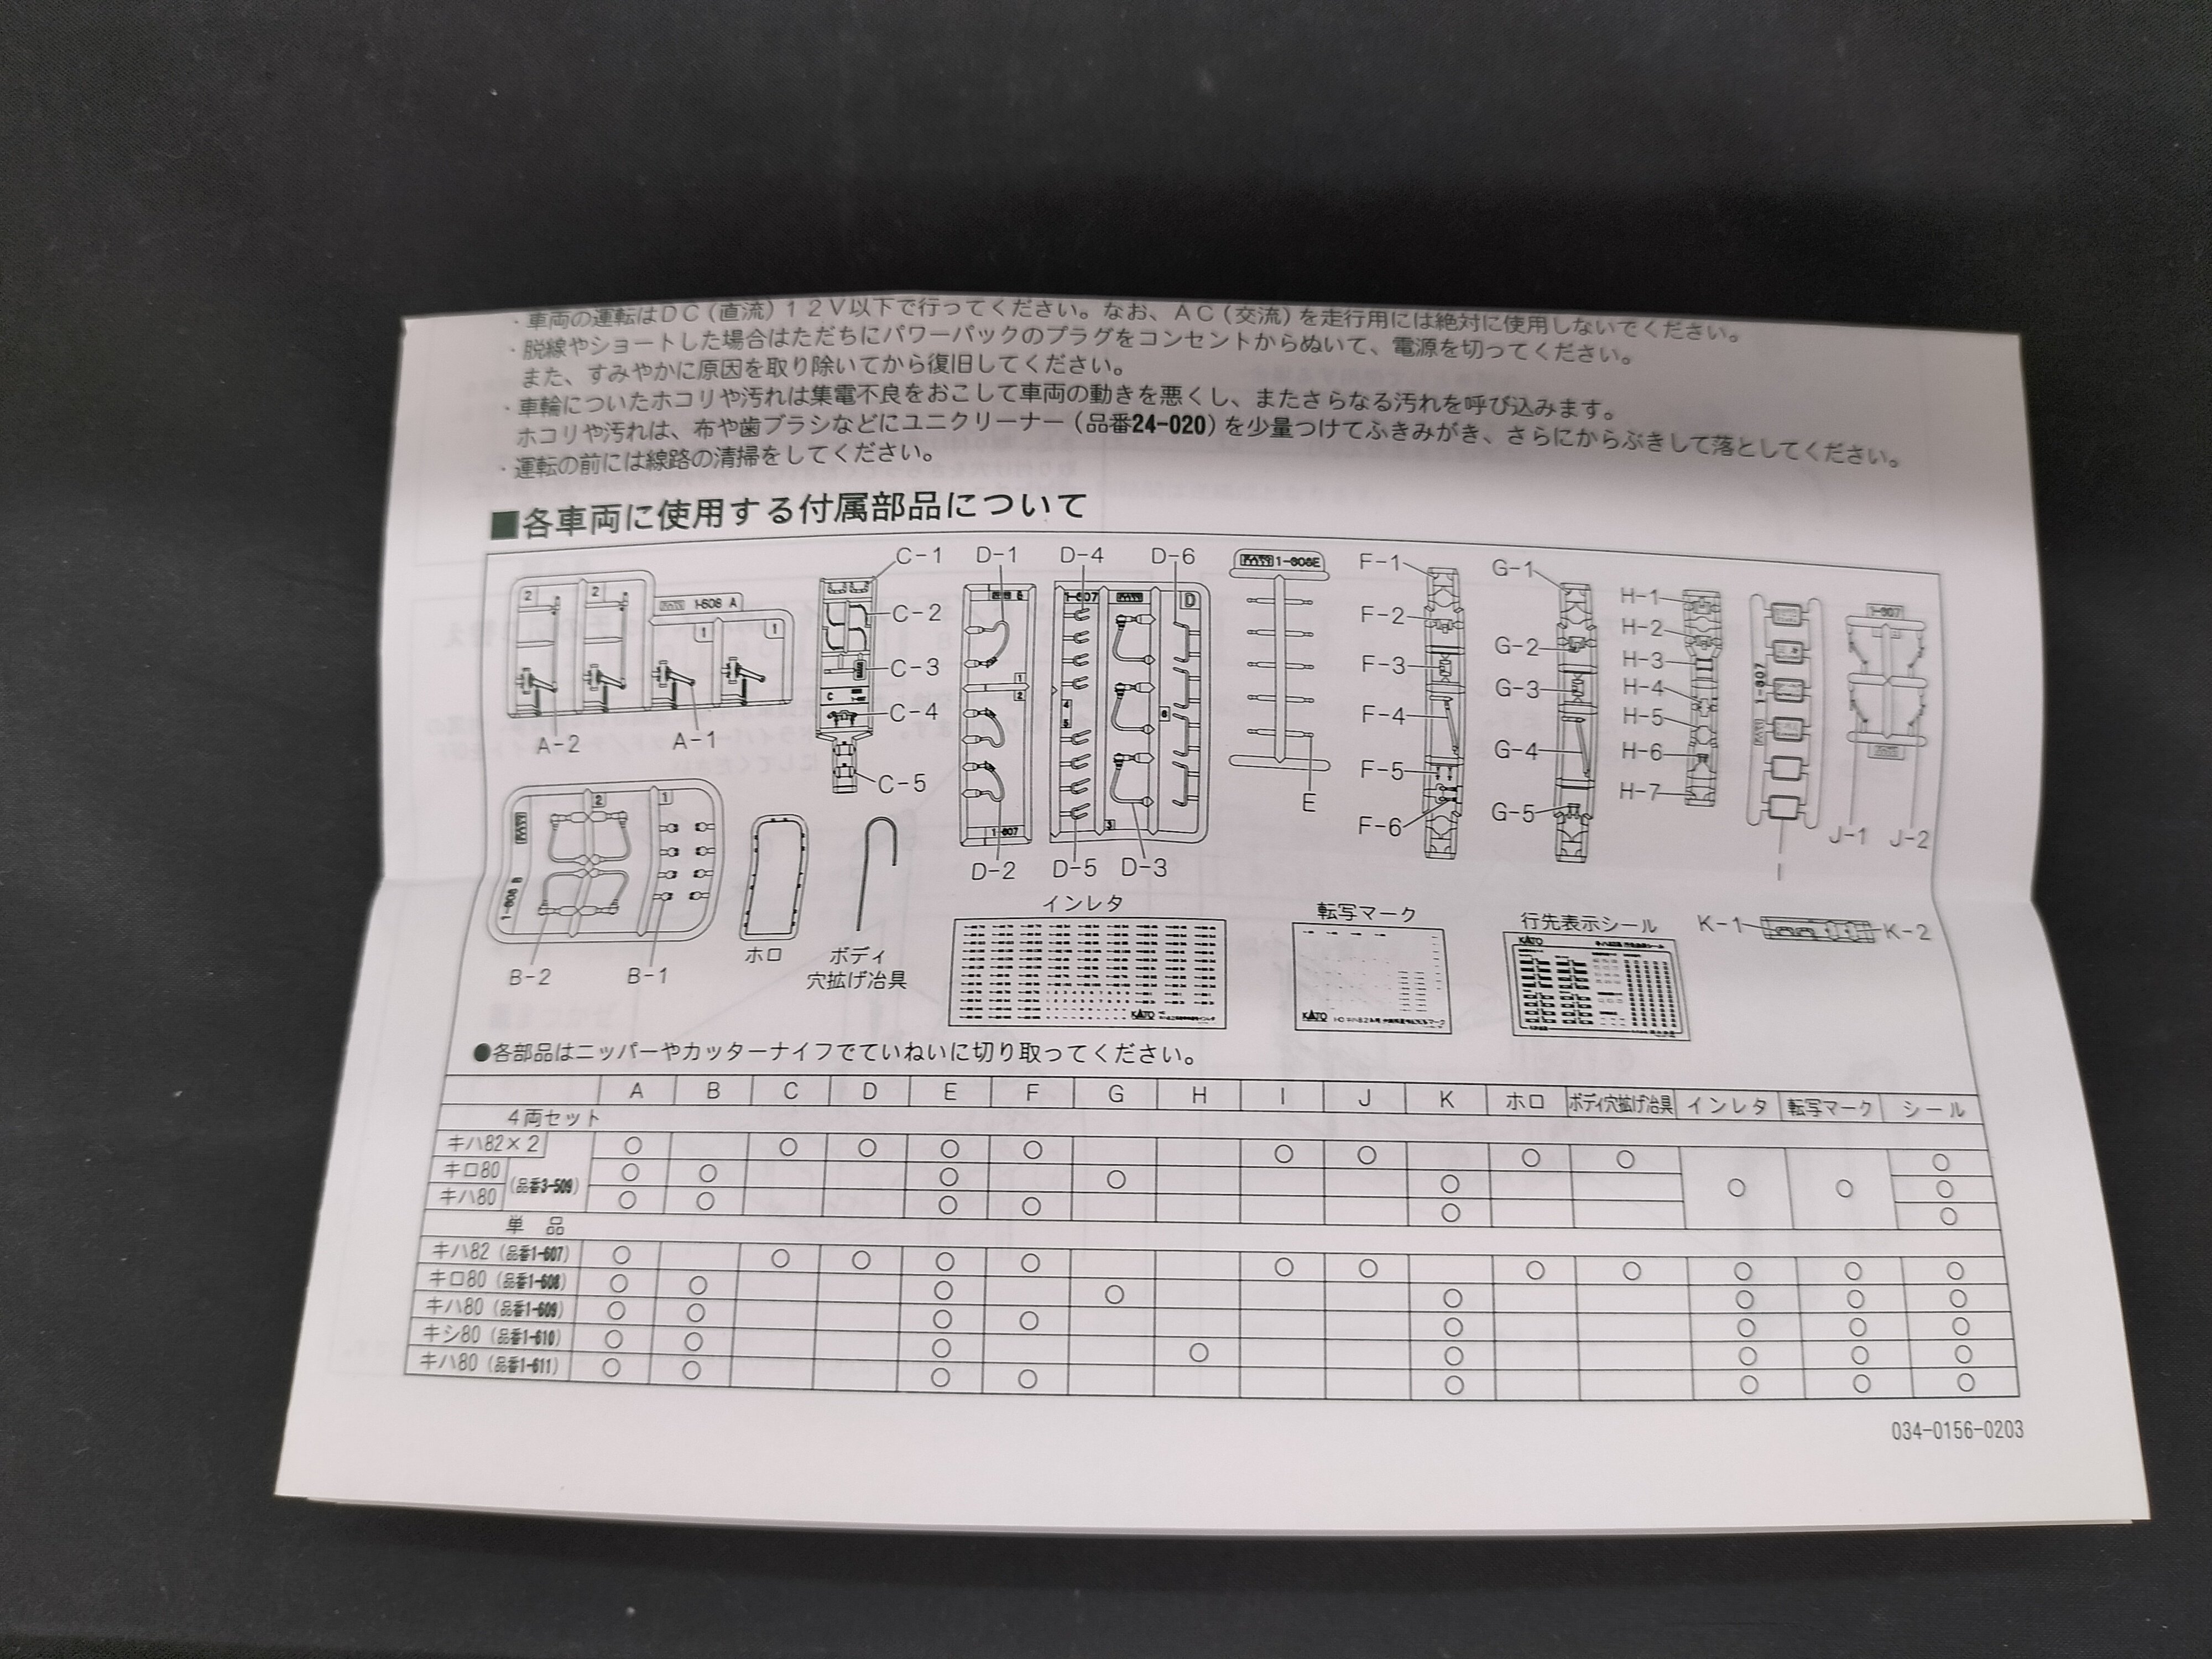 ・車両の運転はＤＣ（直流）１２Ｖ以下で行ってください。なお、ＡＣ（交流）を走行用には絶対に使用しないでください。
・脱線やショートした場合はただちにパワーパックのプラグをコンセントからぬいて、電源を切ってください。
また、すみやかに原因を取り除いてから復旧してください。
・車輪についたホコリや汚れは集電不良をおこして車両の動きを悪くし、またさらなる汚れを呼び込みます。
ホコリや汚れは、布や歯ブラシなどにユニクリーナー（品番24-020）を少量つけてふきみがき、さらにからぶきして落としてください。
・運転の前には線路の清掃をしてください。
■各車両に使用する付属部品について
C-1 D-1 D-4 D-6 1-608E F-1 G-1
2 2 1-608 A 1 1
C-2 F-2 G-2 H-1 H-2 1-607
C-3 F-3 G-3 H-3 1-607
C-4 F-4 H-4 H-5
A-2 A-1 C-5 F-5 G-4 H-6
E F-6 G-5 H-7 J-1 J-2
D-2 D-5 D-3 I
1-607 D
2 1 1-608 B
B-2 B-1 ホロ ボディ
穴拡げ冶具
インレタ 転写マーク 行先表示シール K-1 K-2
KATO KATO KATO
●各部品はニッパーやカッターナイフでていねいに切り取ってください。
A B C D E F G H I J K ホロ ボディ穴拡げ冶具 インレタ 転写マーク シール
４両セット
キハ82×２ ○ ○ ○ ○ ○ ○ ○ ○ ○ ○
キロ80 (品番3-509) ○ ○ ○ ○ ○ ○ ○ ○
キハ80 ○ ○ ○ ○ ○ ○
単 品
キハ82（品番1-607） ○ ○ ○ ○ ○ ○ ○ ○ ○ ○ ○ ○
キロ80（品番1-608） ○ ○ ○ ○ ○ ○ ○ ○
キハ80（品番1-609） ○ ○ ○ ○ ○ ○ ○ ○
キシ80（品番1-610） ○ ○ ○ ○ ○ ○ ○ ○
キハ80（品番1-611） ○ ○ ○ ○ ○ ○ ○ ○
034-0156-0203